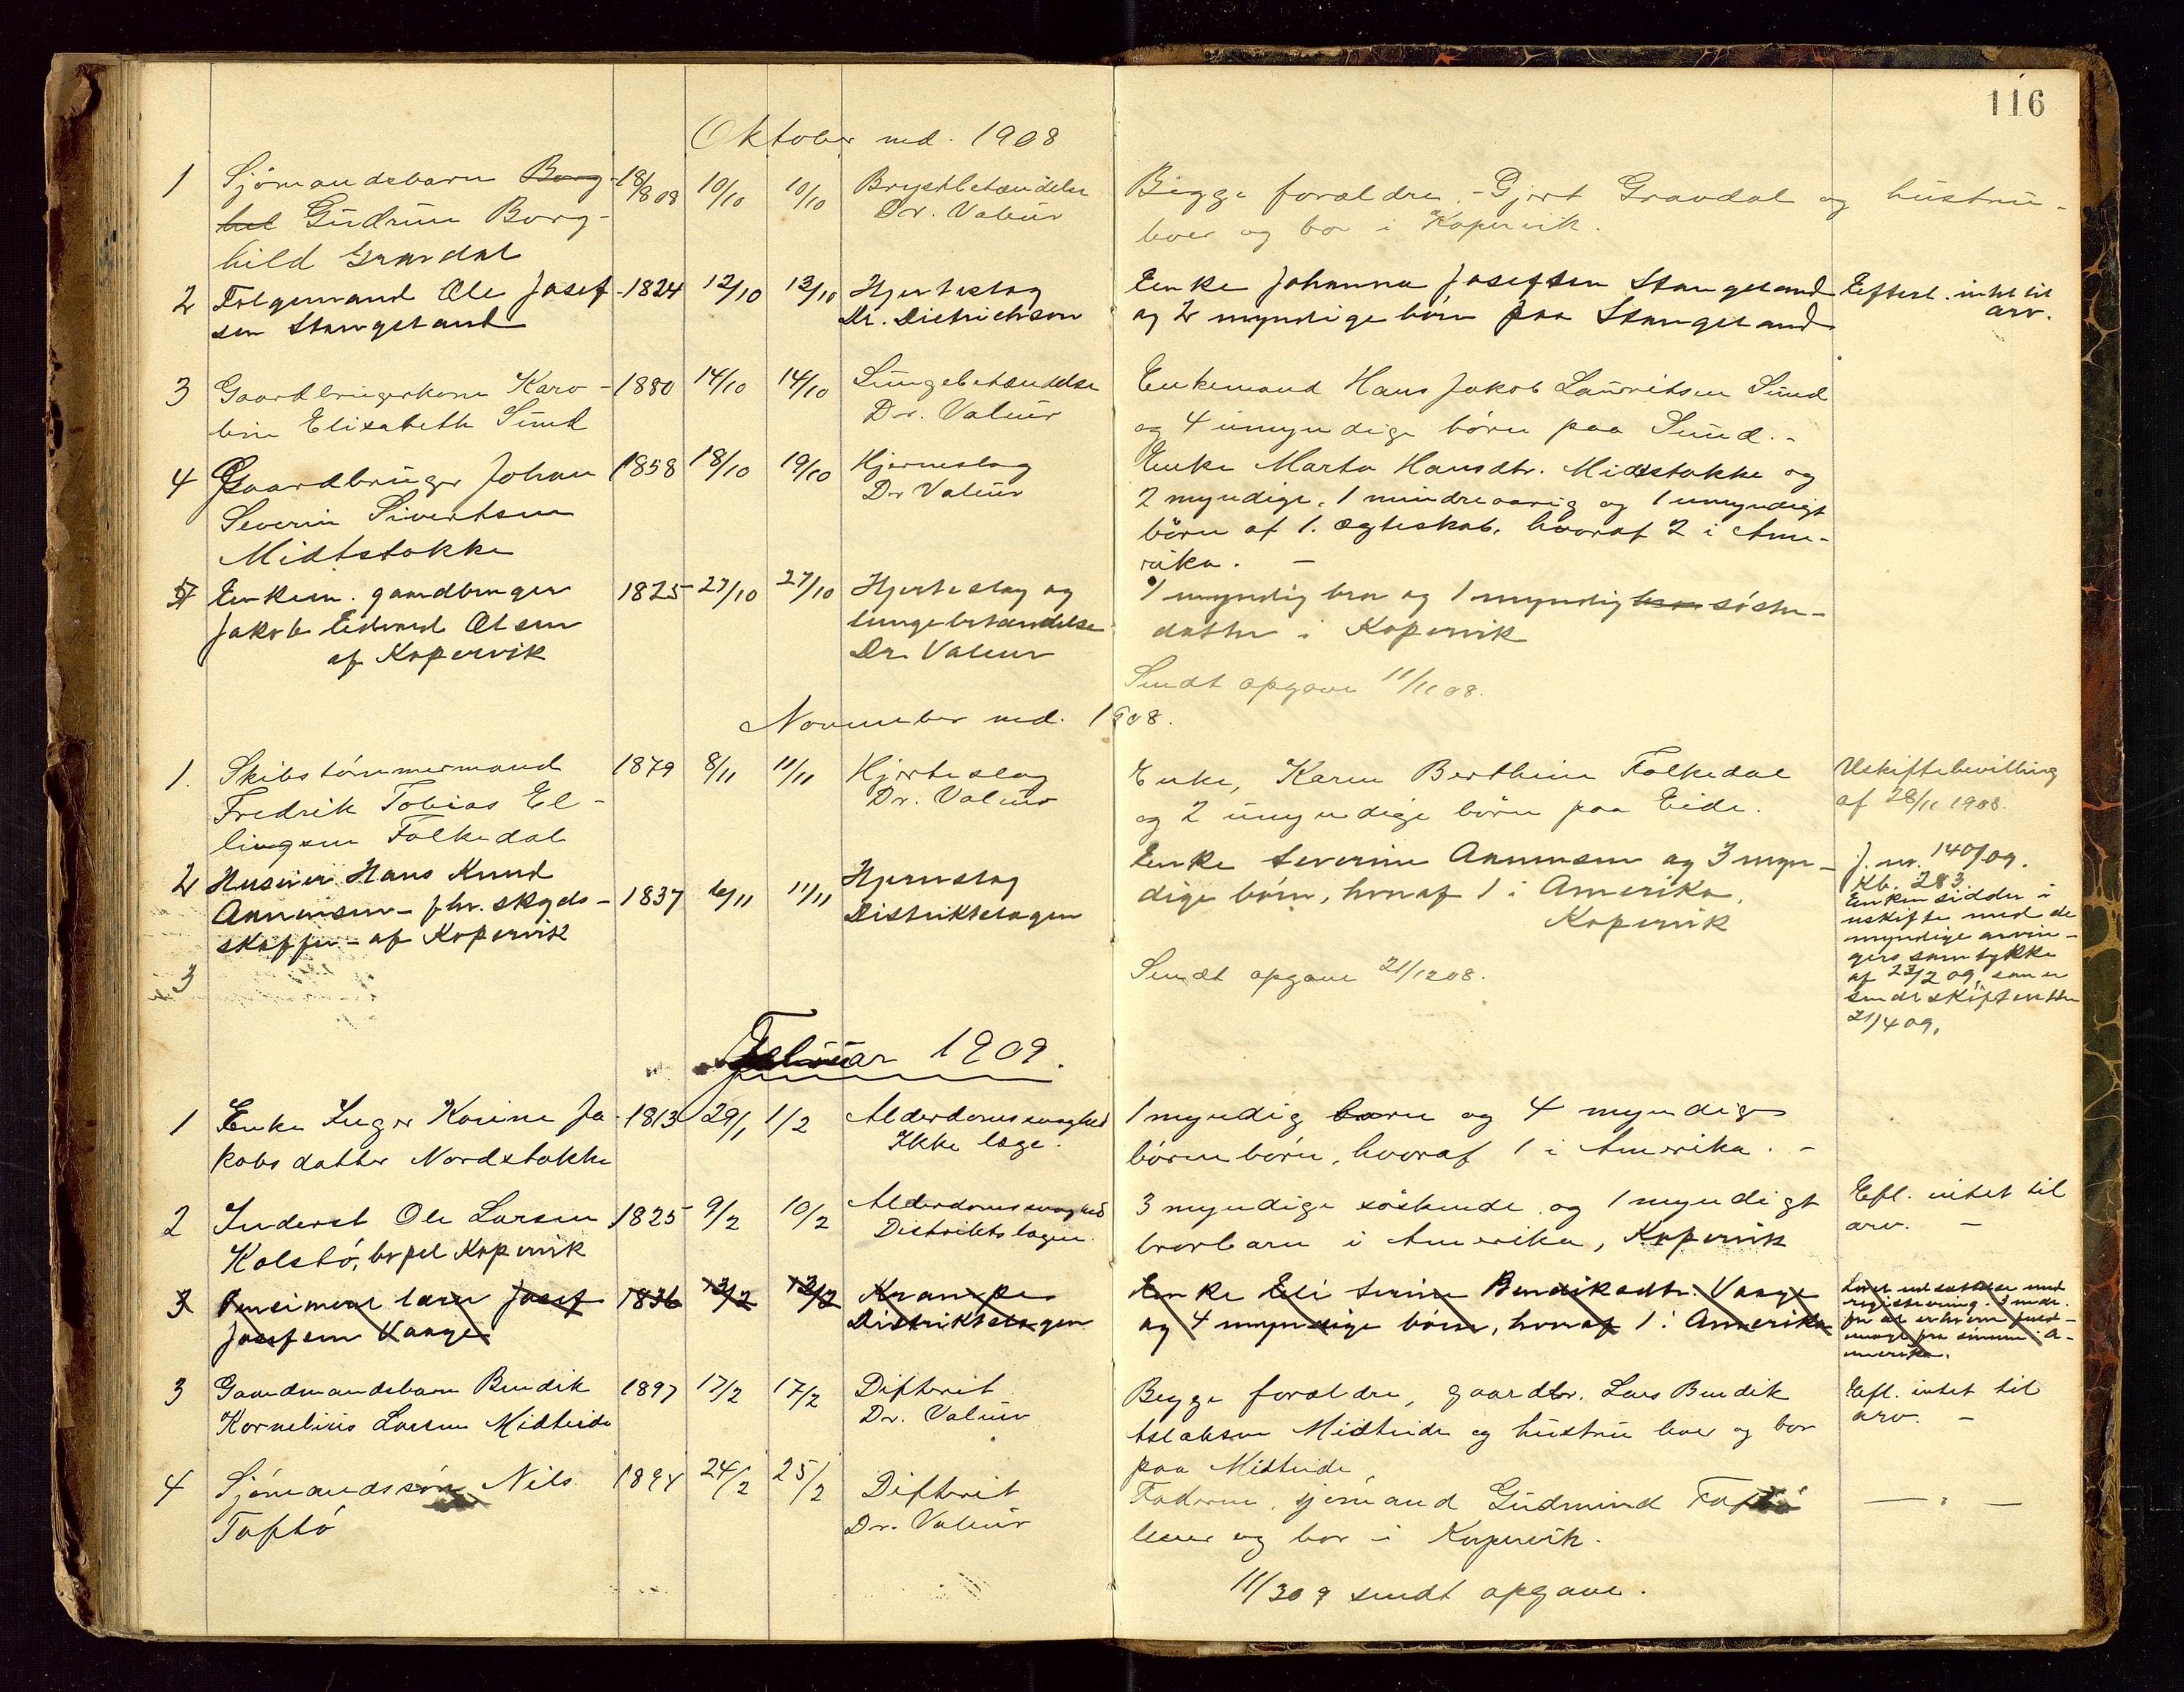 116
Oktober md. 1908
1 Sjömandsbarn Borg- 18/8 08 10/10 10/10 Brystbetændelse Begge forældre, - Gjert Gravdal og hustru -
hil Gudrun Borg- Dr. Valeur lever og bor i Kopervik.
hild Gravdal
2 Følgemand Ole Josef- 1824 12/10 13/10 Hjerteslag Enke Johanna Josefsen Stangeland Efterl. intet til
sen Stangeland Dr. Dietrichson og 2 myndige börn paa Stangeland arv.
3 Gaardbrugerkone Karo- 1880 14/10 14/10 Lungebetændelse Enkemand Hans Jakob Lauritsen Sund
line Elisabeth Sund Dr. Valeur og 4 umyndige börn paa Sund. -
4 Gaardbruger Johan 1858 18/10 19/10 Hjerneslag Enke Marta Hansdtr. Midtstokke og
Severin Sivertsen Dr Valeur 2 myndige, 1 mindreaarig og 1 umyndigt
Midtstokke börn af 1. ægteskab, hvoraf 2 i Ame-
rika. -
5 Enkem. gaardbruger 1825 27/10 27/10 Hjerteslag og 1 myndig bror og 1 myndig bror söster-
Jakob Edvard Olsen lungebetændelse datter i Kopervik
af Kopervik Dr. Valeur
Sendt opgave 11/11 08.
November md. 1908.
1. Skibstömmermand 1879 8/11 11/11 Hjerteslag Enke, Karen Berthine Folkedal Uskiftebevilling
Fredrik Tobias El- Dr. Valeur og 2 umyndige börn paa Eide. af 28/11 1908.
lingsen Folkedal
2 Huseier Hans Knud Hjerneslag Enke Severine Ammensen og 3 myn- J. nr. 140/09.
Ammensen - fhv. skyds- 1837 6/11 11/11 Distriktslægen dige börn, hvoraf 1 i Amerika. Kb. 283
skaffer - af Kopervik Kopervik Enken sidder i
uskifte med de
myndige arvin-
3 Sendt opgave 21/12 08. gers samtykke
af 23/2 09, som er
sendt skifteretten
21/4 09.
Februar 1909.
1 Enke Inger Karine Ja- 1813 29/1 1/2 Alderdomssvaghed 1 myndig barn og 4 myndige
kobsdatter Nordstokke Ikke læge. börnebörn, hvoraf 1 i Amerika. -
2 Inderst Ole Larsen 1825 9/2 10/2 Alderdomssvaghed 3 myndige söskende og 1 myndigt Efl. intet til
Kolstö, bopel Kopervik Distriktslægen. brorbarn i Amerika, Kopervik arv. -
3 Josef 1836 13/2 13/2 Krampe Enke Eli Serine Bendiksdtr. Vaage
Josefsen Vaage Distriktslægen og 4 myndige börn, hvoraf 1 i Amerika
3 Gaardmandsbarn Bendik 1897 17/2 17/2 Difterit Begge forældre, gaardbr. Lars Bendik Efl. intet til
Kornelius Larsen Midteide Dr. Valeur Aslaksen Midteide og hustru lever og bor arv. -
paa Midteide
4 Sjömandssön Nils 1894 24/2 25/2 Difterit Faderen, sjömand Gudmund Toftö — " —
Toftö Dr. Valeur lever og bor i Kopervik.
11/3 09 sendt opgave.